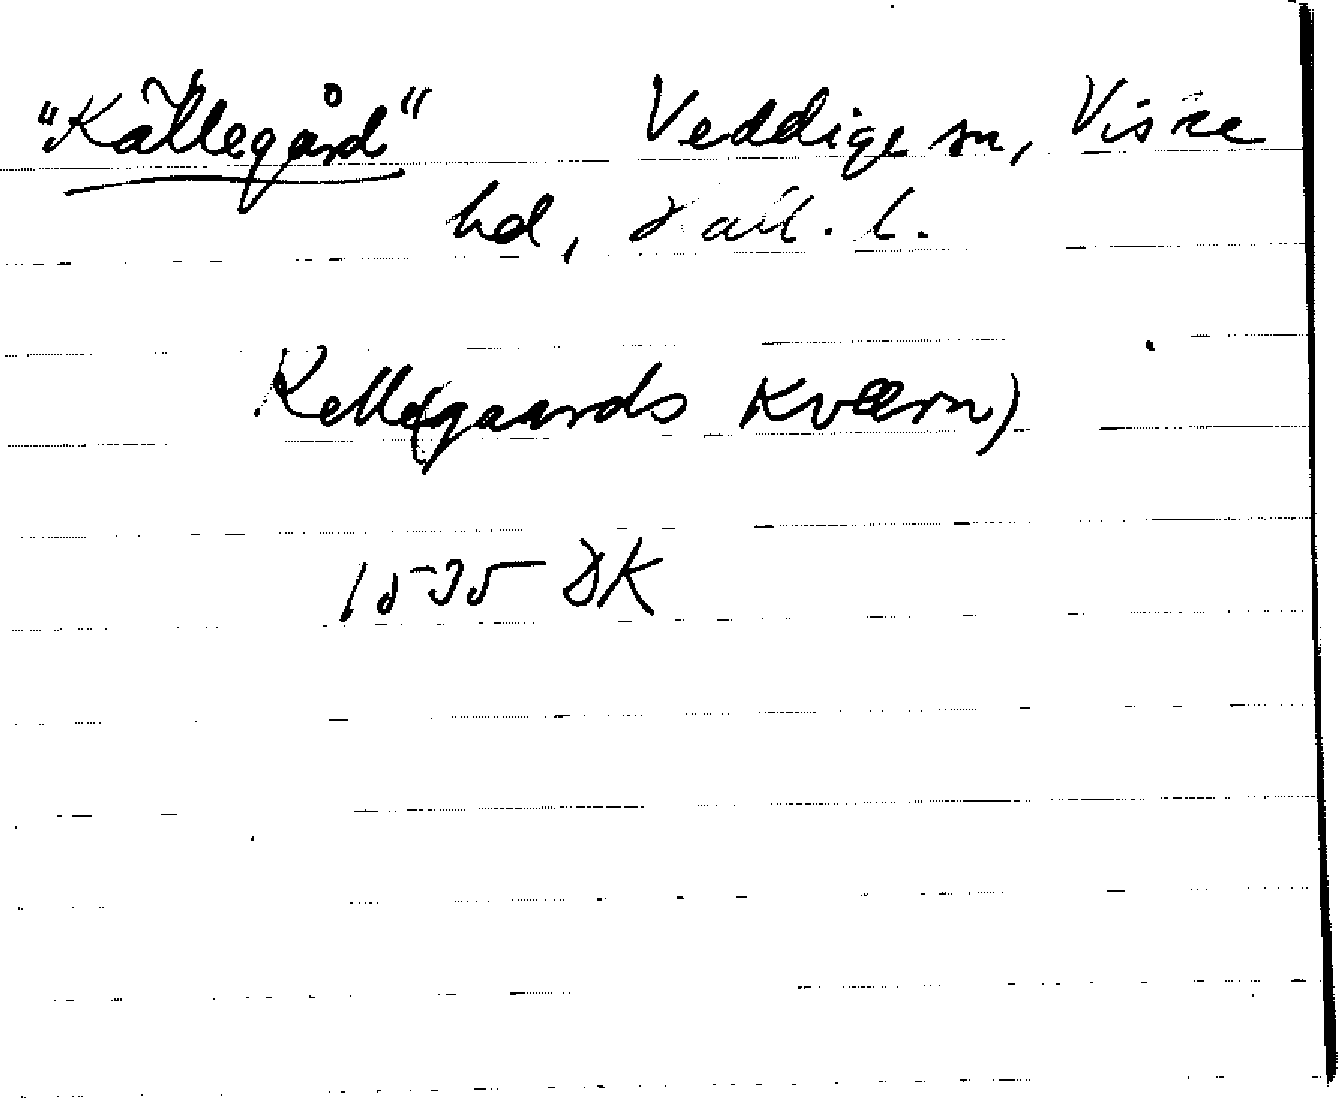 "Källegård" Veddige sn, Viske
hd, Hall. l.
Kelle(gaards Kværn)
1535 DK